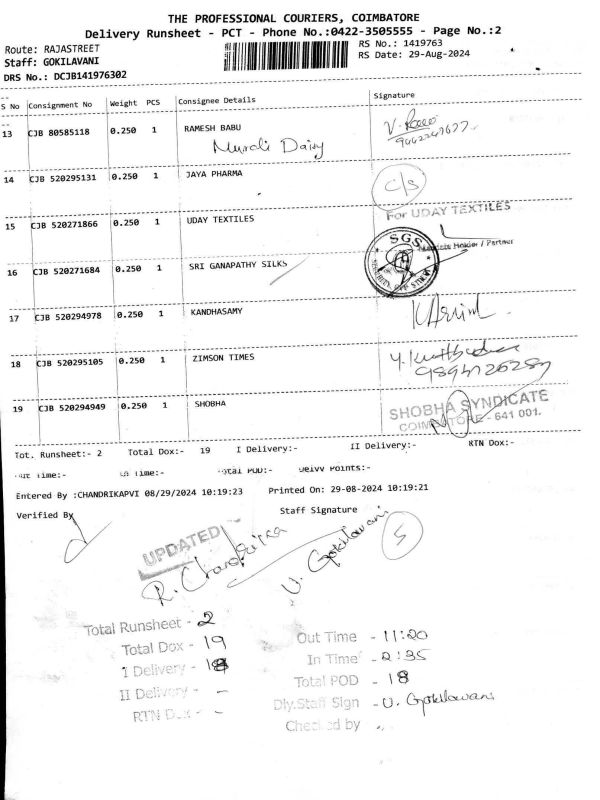 THE PROFESSIONAL COURIERS, COIMBATORE
Delivery Runsheet - PCT - Phone No.:0422-3505555 - Page No.:2
Route: RAJASTREET
RS No.: 1419763
Staff: GOKILAVANI
RS Date: 29-Aug-2024
DRS No.: DCJB141976302
S No Consignment No Weight PCS Consignee Details Signature
13 CJB 80585118 0.250 1 RAMESH BABU
Murali Daisy
14 CJB 520295131 0.250 1 JAYA PHARMA C/S
15 CJB 520271866 0.250 1 UDAY TEXTILES For UDAY TEXTILES
Holder / Partner
SGS
16 CJB 520271684 0.250 1 SRI GANAPATHY SILKS
17 CJB 520294978 0.250 1 KANDHASAMY
18 CJB 520295105 0.250 1 ZIMSON TIMES
19 CJB 520294949 0.250 1 SHOBHA SHOBHA SYNDICATE
COIMBATORE - 641 001.
Tot. Runsheet:- 2 Total Dox:- 19 I Delivery:- II Delivery:- RTN Dox:-
Out Time:- In Time:- Total POD:- Delvv Points:-
Entered By :CHANDRIKAPVI 08/29/2024 10:19:23 Printed On: 29-08-2024 10:19:21
Verified By Staff Signature
UPDATED
R. Chandrika U. Gokilavani
Total Runsheet - 2
Total Dox - 19
Out Time - 11:20
I Delivery - 18
In Time - 2:35
II Delivery - -
Total POD - 18
RTN Dox - -
Dly.Staff Sign - U. Gokilavani
Checked by -